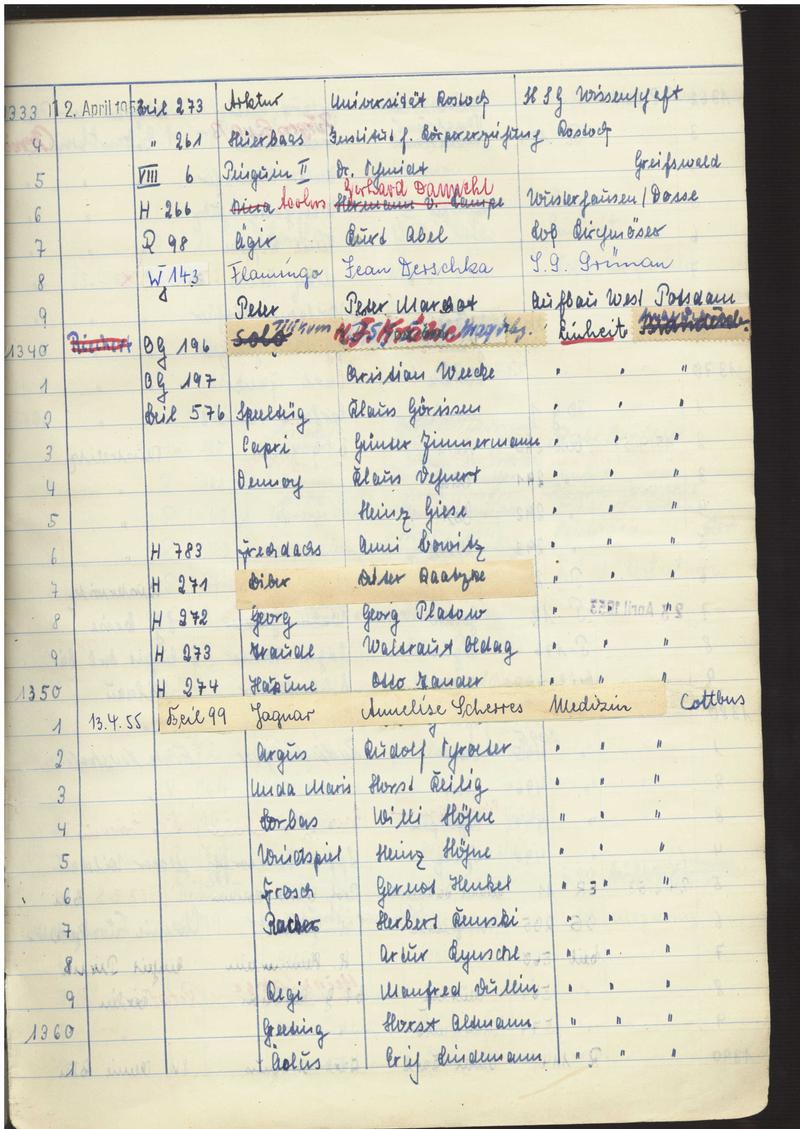 1333 12. April 195 Beil 273 Arktur Universität Rostock HSG Wissenschaft
4 " 261 Heierbaas Institut f. Körpererziehung Rostock
5 VIII 6 Pinguin II Dr. Schmidt Greifswald
6 H 266 Gerhard Damscht Wusterhausen/Dosse
7 R 98 Ägir Kurt Abel Lok Kirchmöser
8 W 143 Flamingo Jean Derschka S.G. Grünau
9 Peter Peter Aufbau West Potsdam
1340 OJ 196 Solo Einheit
1 OJ 197 Christian Weecke " " "
2 Beil 576 Klaus Görissen " " "
3 Capri Günter Zimmermann " " "
4 Klaus Dehnert " " "
5 Heinz Giese " " "
6 H 783 Frechdachs Anni " " "
7 H 271 Biber Dieter Raatzke " " "
8 H 272 Georg Georg Platow " "
9 H 273 Traudl Waltraut Oldag " " "
1350 H 274 Otto Zander " " "
1 13.4.55 Beil 99 Jaguar Annelise Scherres Medizin Cottbus
2 Argus Rudolf Schroeter " " "
3 Unda Maris Horst Keilig " " "
4 Korbas Willi Höhne " " "
5 Windspiel Heinz Höhne " " "
6 Frosch Gernot Henkel " " "
7 Racker Herbert Zenski " " "
8 Artur " " "
9 Regi Manfred Dullin " " "
1360 Greeting Horst Altmann " " "
1 Äolus Erich Lindemann " " "